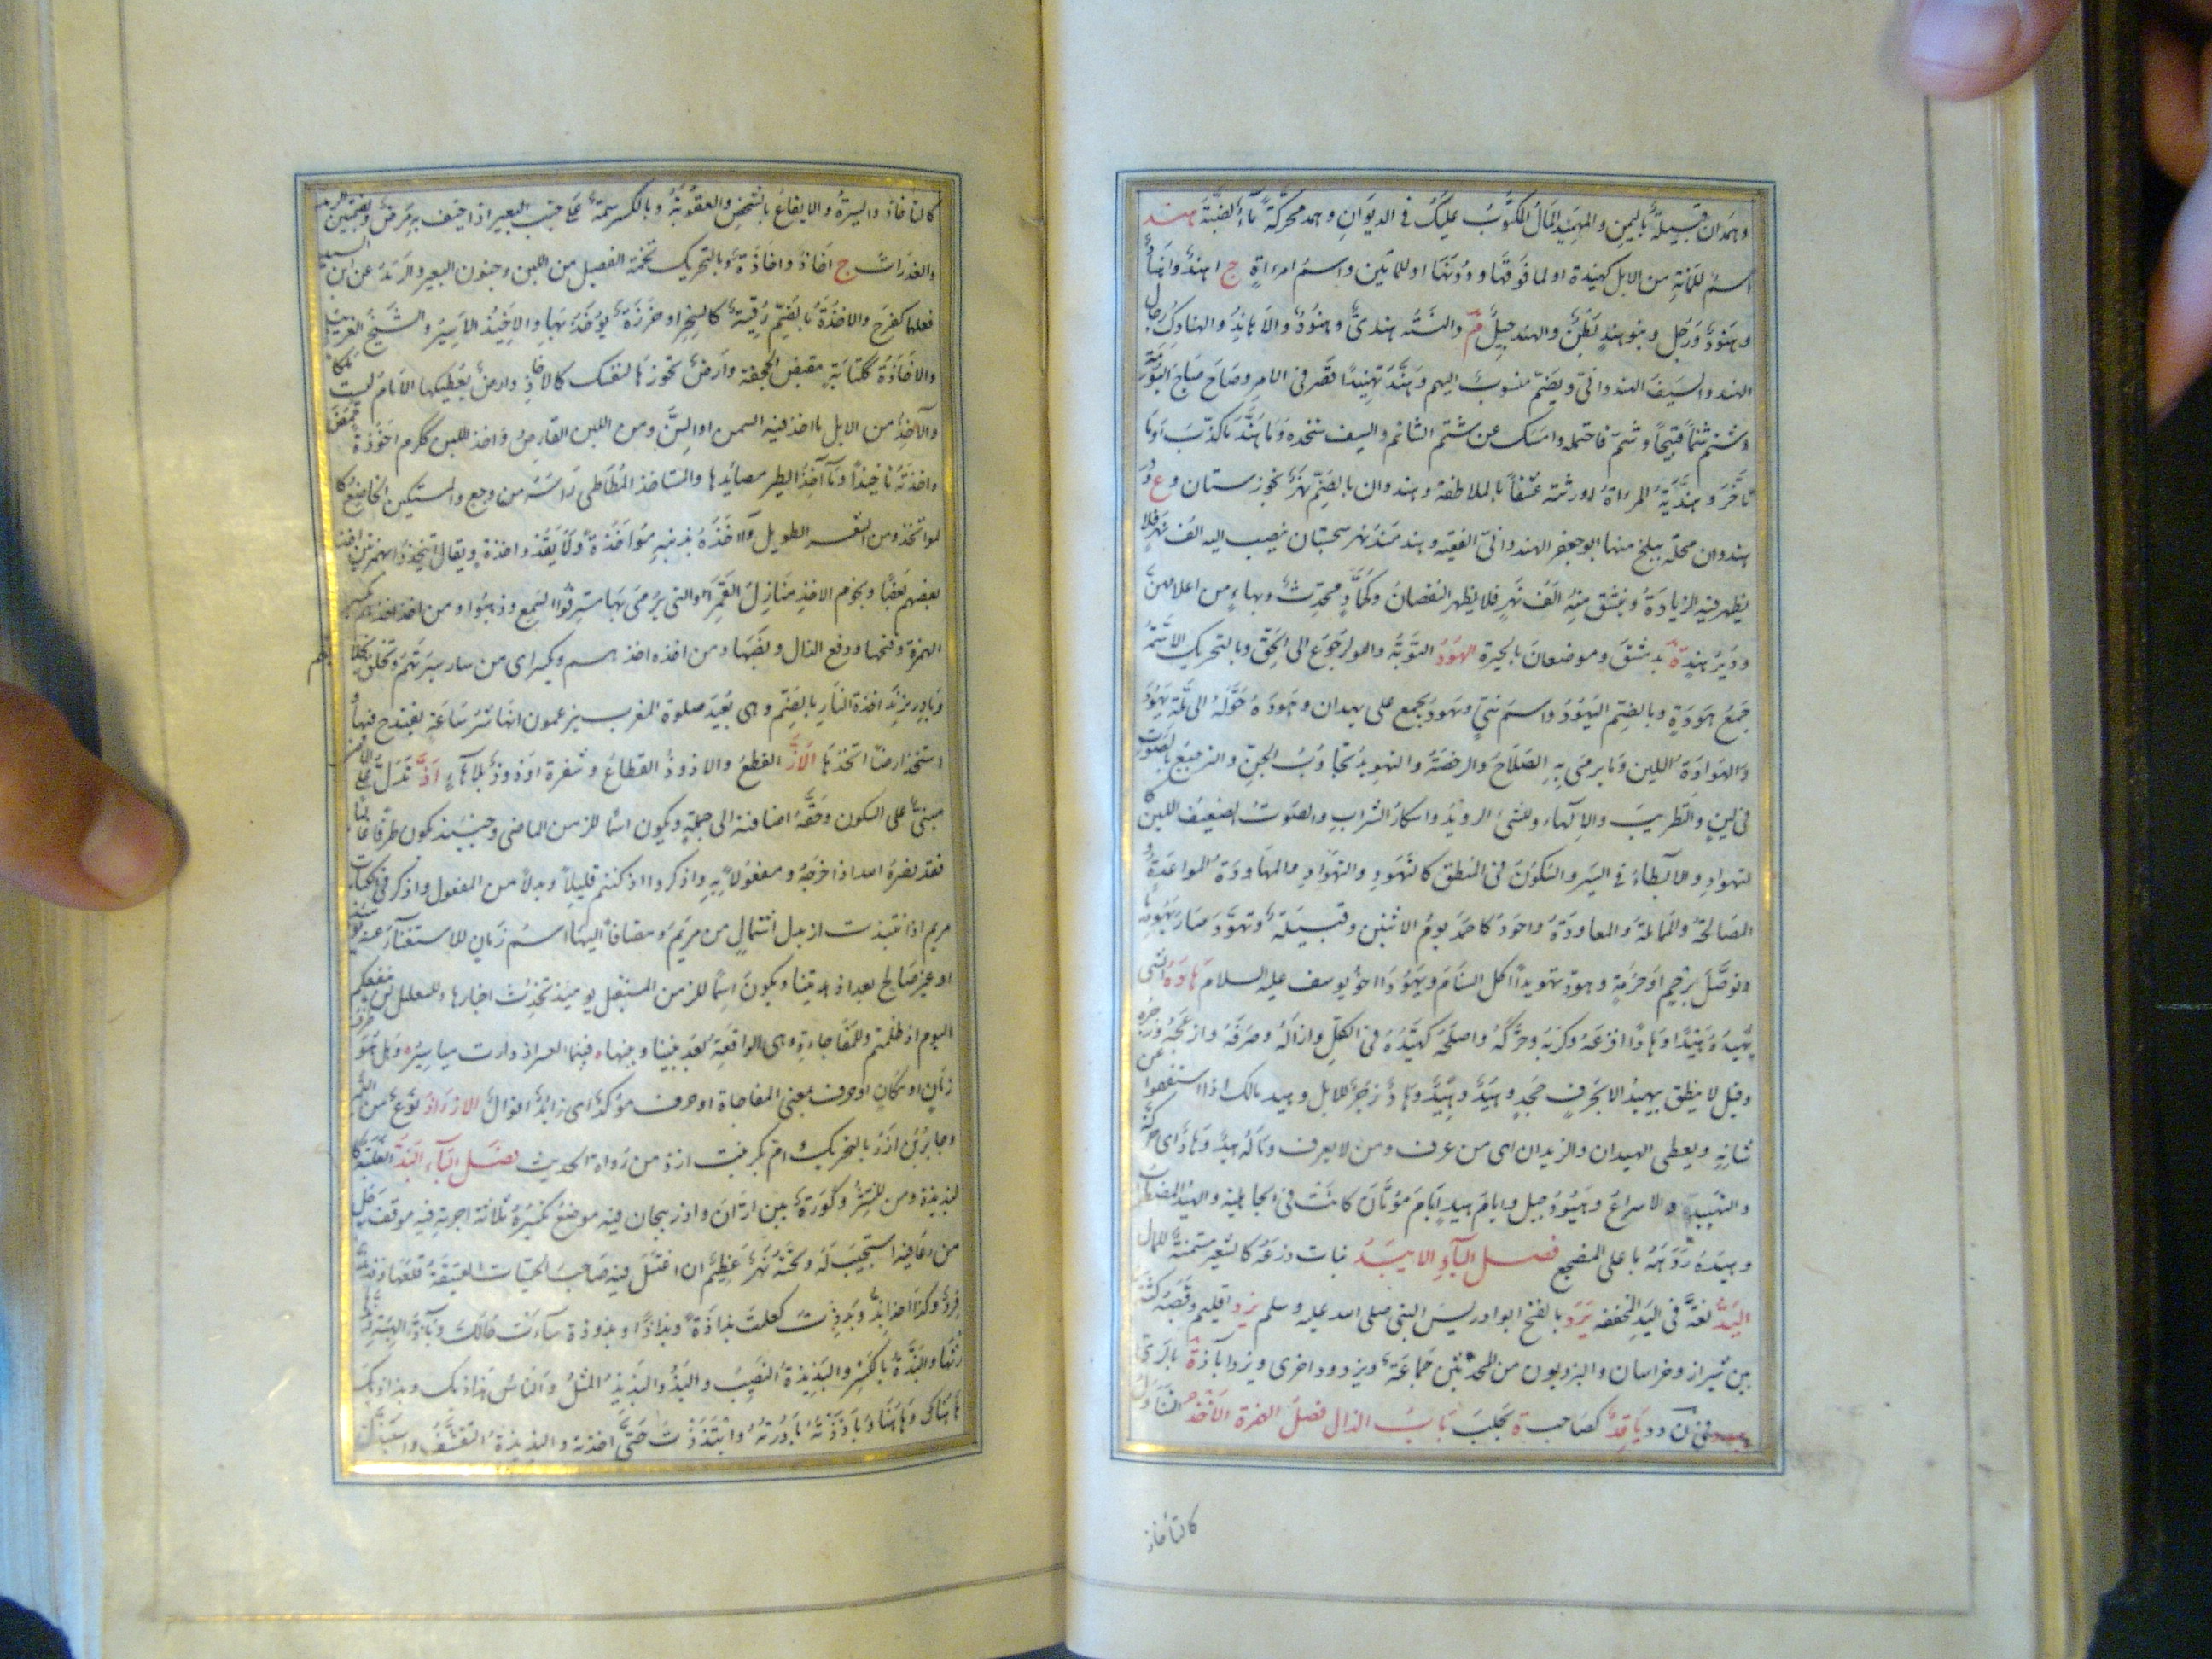 وهمدان قبيلة باليمن والمهمد المال المكتوب عليك في الديوان وهمد محركة ماء لضبة هند
اسم للمائة من الابل كهنيدة او لما فوقها ودونها او للمائتين واسم امراة ج اهند واهناد
وهنود ورجل وبنو هند بطن والهند جيل م والنسبة هندي وهنود والاهاند والهنادك رجال
الهند والسيف الهندواني ويضم منسوب اليهم وهند تهنيدا قصر في الامر وصاح صياح البومة
وشتم شتما قبيحا وشتم فاحتمله وامسك عن شتم الشاتم والسيف شحذه وما هند ما كذب او ما
تاخر وهندته المراة اورثته عشقا بالملاطفة وهندوان بالضم نهر بخوزستان وع و
هندوان محلة ببلخ منها ابو جعفر الهندواني الفقيه وهند مند نهر بسجستان ينصب اليه الف نهر فلا
يظهر فيه الزيادة وينشق منه الف نهر فلا يظهر النقصان وكماد محدث وهاء من اعلامهن
ودير هند ة بدمشق وموضعان بالحيرة الهود التوبة والرجوع الى الحق وبالتحريك الاسنمة
جمع هودة وبالضم اليهود واسم نبي ويهود يجمع على يهدان وهوده حوله الى ملة يهود
والهوادة اللين وما يرجى به الصلاح والرخصة والتهويد تجاوب الجن والترجيع بالصوت
في لين والتطريب والالهاء والمشي الرويد واسكار الشراب والصوت الضعيف اللين كا
لتهواد والابطاء في السير والسكون في المنطق كالتهود والتهواد والمهاودة المواعدة و
المصالحة والممايلة والمعاودة واهود كاحمد يوم الاثنين وقبيلة وتهود صار يهوديا
وتوصل برحم او حرمة وهود تهويدا اكل السنام ويهودا اخو يوسف عليه السلام هاده الشي
يهيده هيدا وهادا افزعه وكربه وحركه واصلحه كهيده في الكل وازاله وصرفه وازعجه وزجره
وقيل لا ينطق بيهيد الا بحرف جحد وهيد وهيد وهاد زجر للابل وهيد مالك اذا استفهموا عن
شانه ويعطي الهيدان والزيدان اي من عرف ومن لا يعرف وماله هيد وهاد اي حركة
والتهييد الاسراع وهيود جبل وايام هيد ايام موتان كانت في الجاهلية والهيد المضطرب
وهيدة ردهة باعلى المضجع فصل الياء الابيد نبات زرعه كالشعير مسمنة للمال
اليد لغة في اليد المخففة يرد بالفتح ابو ادريس النبي صلى الله عليه وسلم يزد اقليم وقصبته كثة
بين شيراز وخراسان واليزديون من المحدثين جماعة ويزدود اخرى ويزداباذ ة بالري
ياقد كصاحب ة بحلب باب الذال فصل الهمزة الاخذ التناول
كالتاخاذ
كالتاخاذ والسيرة والايقاع بالشخص والعقوبة وبالكسر سمة على جنب البعير اذا خيف به مرض وبضمتين الرمد
والغدران ج اخاذ واخاذة وبالتحريك تخمة الفصيل من اللبن وجنون البعير والرمد عن ابن السيد
فعلها كفرح والاخذة بالضم رقية كالسحر او خرزة يوخذ بها والاخيذ الاسير والشيخ الغريب
والاخاذة ككتابة مقبض الحجفة وارض تحوزها لنفسك كالاخاذ وارض يعطيكها الامام ليست ملكا
والآخذ من الابل ما اخذ فيه السمن او السن ومن اللبن القارص واخذ اللبن ككرم اخوذة حمض
واخذته تاخيذا ومآخذ الطير مصايدها والمستاخذ المطاطي راسه من وجع والمستكين الخاضع كا
لمواتخذ ومن الشعر الطويل وآخذه بذنبه مواخذة ولا تقل واخذه ويقال ائتخذوا بهمزتين اخذ
بعضهم بعضا ونجوم الاخذ منازل القمر او التي يرمى بها مسترقوا السمع وذهبوا ومن اخذ اخذهم بكسر
الهمزة وفتحها ورفع الذال ونصبها ومن اخذه اخذهم ويكسر اي من سار سيرتهم وتخلق بخلائقهم
وبادر بزند اخذة النار بالضم وهي بعيد صلوة المغرب يزعمون انها شر ساعة يقتدح فيها و
استخذ ارضا اتخذها الاذ القطع والاذوذ القطاع وشفرة اذوذ بلا هاء اذ تدل على ما مضى
مبني على السكون وحقه اضافته الى جملة ويكون اسما للزمن الماضي وحينئذ يكون ظرفا غالبا
فقد نصره الله اذ اخرجه ومفعولا به واذكروا اذ كنتم قليلا وبدلا من المفعول واذكر في الكتاب
مريم اذ انتبذت اذ بدل اشتمال من مريم ومضافا اليها اسم زمان للاستغناء عنه يومئذ
او غير صالح بعد اذ هديتنا ويكون اسما للزمن المستقبل يومئذ تحدث اخبارها وللتعليل لن ينفعكم
اليوم اذ ظلمتم وللمفاجاءة وهي الواقعة بعد بينا وبينما فبينما العسر اذ دارت مياسير وهل هو ظرف
زمان او مكان او حرف بمعنى المفاجاة او حرف موكد اي زايد اقوال الازاذ نوع من التمر
وجابر بن ازذ بالتحريك ام بكر بنت ازذ من رواة الحديث فصل الباء البذ الغلبة كا
لبذيذة ومن التمر وكورة بين اران واذربيجان فيه موضع تكسيره ثلاثة اجربة فيه موقف رجل
من دعا فيه استجيب له وتحته نهر عظيم ان اغتسل فيه صاحب الحميات العتيقة قلعها وفذ
فرد وكذا احذ ابذ وبذذت كعلمت بذاذة وبذاذا وبذوذة ساءت حالك وباذ الهيئة وبذها
رثها والبذة بالكسر والبذيذة النصيب والبذ والبذيذ المثل والناس هذاذيك وبذاذيك
هاهنا وهاهنا وباذذته بادرته وابتذذت حقي اخذته والبذيذة التقشف واستبذ